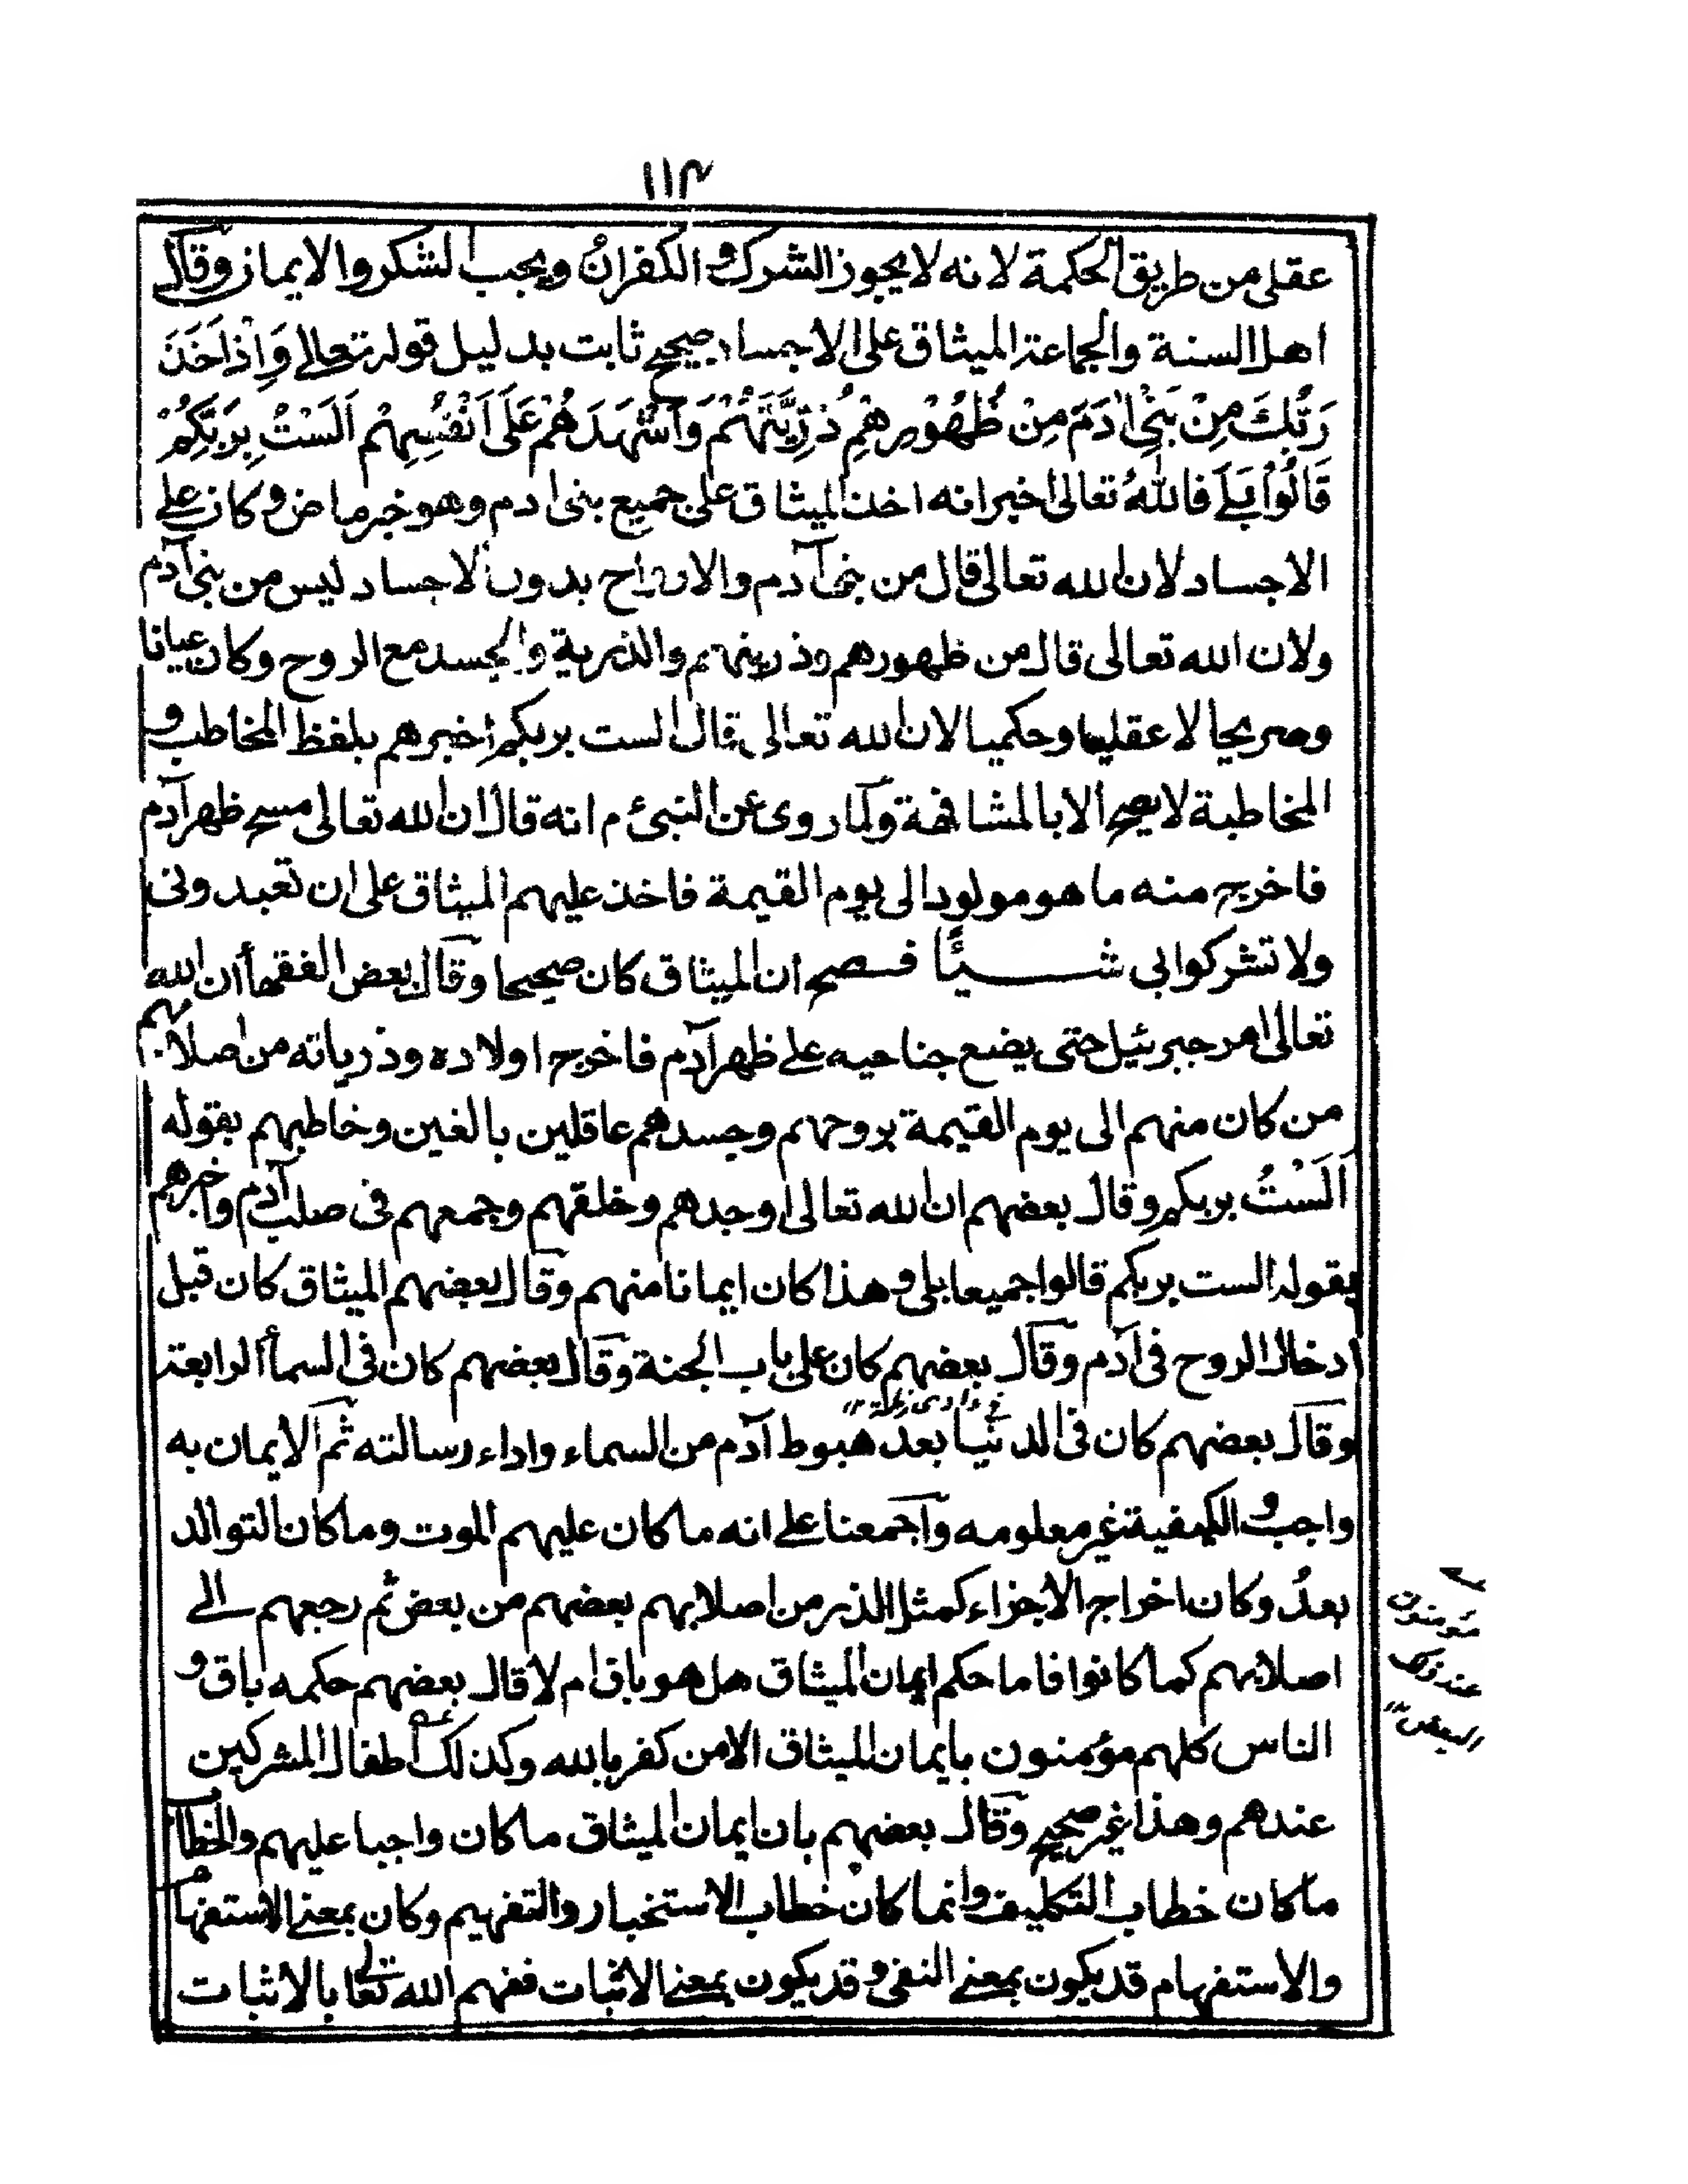 ١١٣
عقلى من طريق الحكمة لانه لا يجوز الشرك و الكفران ويجب الشكر والايمان وقال
اهل السنة والجماعة الميثاق على الاجساد صحيح ثابت بدليل قوله تعالى وَاِذْ اَخَذَ
رَبُّكَ مِنْ بَنِىْ اٰدَمَ مِنْ ظُهُوْرِهِمْ ذُرِّيَّتَهُمْ وَاَشْهَدَهُمْ عَلَى اَنْفُسِهِمْ اَلَسْتُ بِرَبِّكُمْ
قَالُوْا بَلٰى فاللهُ تعالى اخبر انه اخذ الميثاق على جميع بنى ادم وهو خبر ماض وكان على
الاجساد لان الله تعالى قال من بنى آدم والارواح بدون الاجساد ليس من بنى آدم
ولان الله تعالى قال من ظهورهم وذريتهم والذرية والجسد مع الروح وكان عيانا
وصريحا لا عقليا وحكميا لان الله تعالى قال الست بربكم اخبرهم بلفظ المخاطب و
المخاطبة لا يصح الا بالمشافهة وكما روى عن النبىء م انه قال ان الله تعالى مسح ظهر آدم
فاخرج منه ما هو مولود الى يوم القيمة فاخذ عليهم الميثاق على ان تعبدونى
ولا تشركوا بى شيئًا فصح ان الميثاق كان صحيحا وقال بعض الفقهأ ان الله
تعالى امر جبرئيل حتى يضع جناحيه على ظهر آدم فاخرج اولاده وذرياته من اصلابهم
من كان منهم الى يوم القيمة بروحهم وجسدهم عاقلين بالغين وخاطبهم بقوله
اَلَسْتُ بربكم وقال بعضهم ان الله تعالى اوجدهم وخلقهم وجمعهم فى صلب آدم واخبرهم
بقوله الست بربكم قالوا جميعا بلى وهذا كان ايمانا منهم وقال بعضهم الميثاق كان قبل
ادخال الروح فى آدم وقال بعضهم كان على باب الجنة وقال بعضهم كان فى السمأ الرابعة
وقال بعضهم كان فى الدنيا بعد هبوط آدم من السماء واداء رسالته ثم الايمان به
واجب و الكيفية غير معلومه واجمعنا على انه ما كان عليهم الموت وما كان التوالد
بعدُ وكان اخراج الاجزاء كمثل الذر من اصلابهم بعضهم من بعض ثم رجعهم الى
اصلابهم كما كانوا فاما حكم ايمان الميثاق هل هو باق ام لا قال بعضهم حكمه باق و
الناس كلهم مؤمنون بايمان الميثاق الا من كفر بالله وكذلك اطفال المشركين
عندهم وهذا غير صحيح وقال بعضهم بان ايمان الميثاق ما كان واجبا عليهم والخطاب
ما كان خطاب التكليف وانما كان خطاب الاستخبار والتفهيم وكان بمعنى الاستفهام
والاستفهام قد يكون بمعنى النفى و قد يكون بمعنى الاثبات ففهم الله تعالى بالاثبات
مؤمنون
عند ذلك
البعض